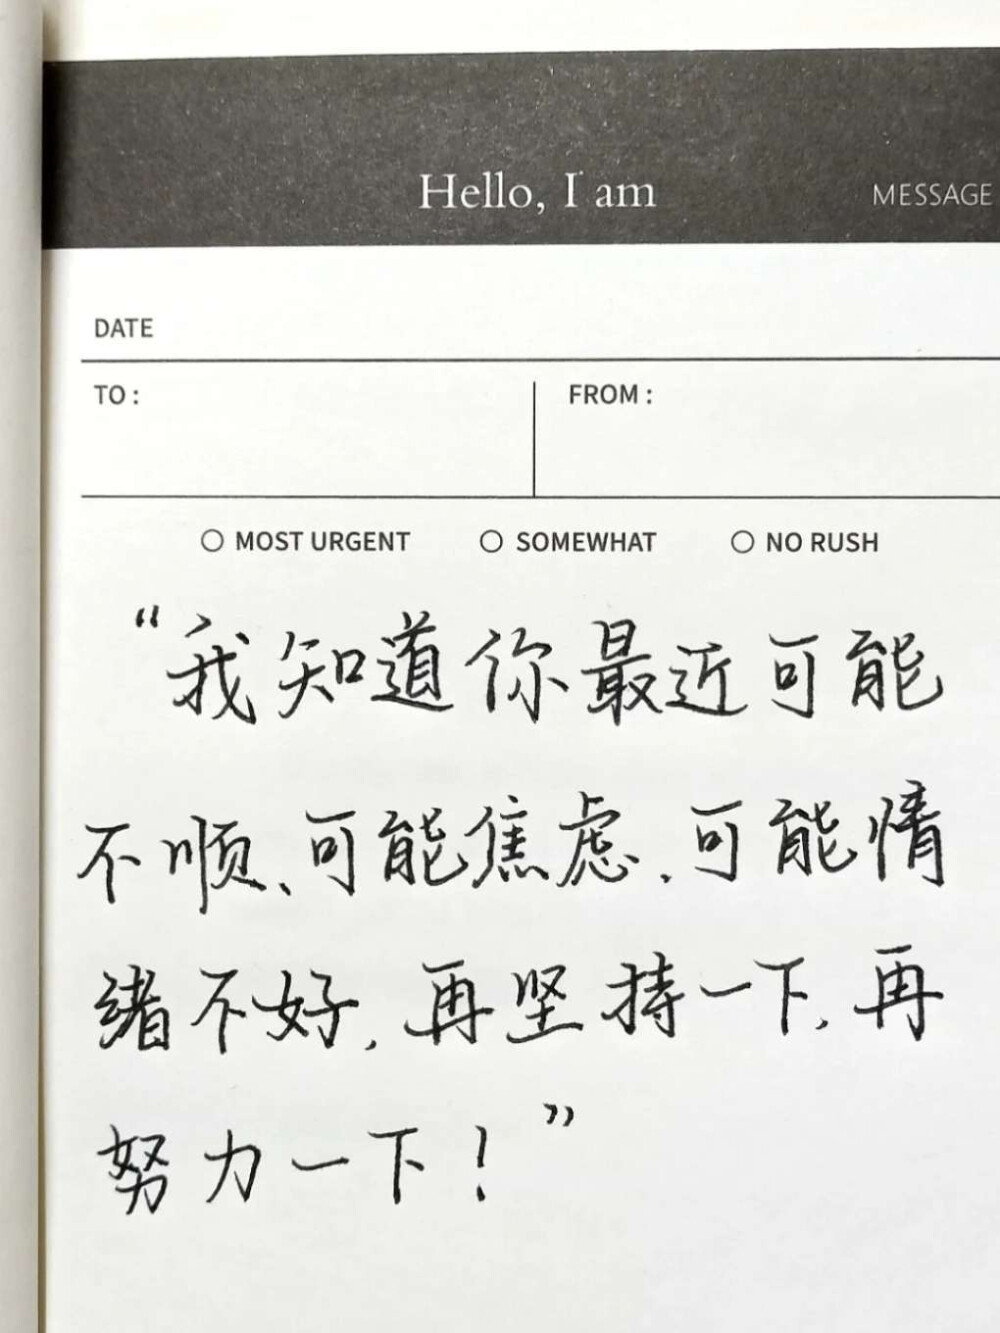 Hello, I am MESSAGE
DATE
TO : FROM :
MOST URGENT SOMEWHAT NO RUSH
“我知道你最近可能
不顺、可能焦虑、可能情
绪不好,再坚持一下,再
努力一下!”